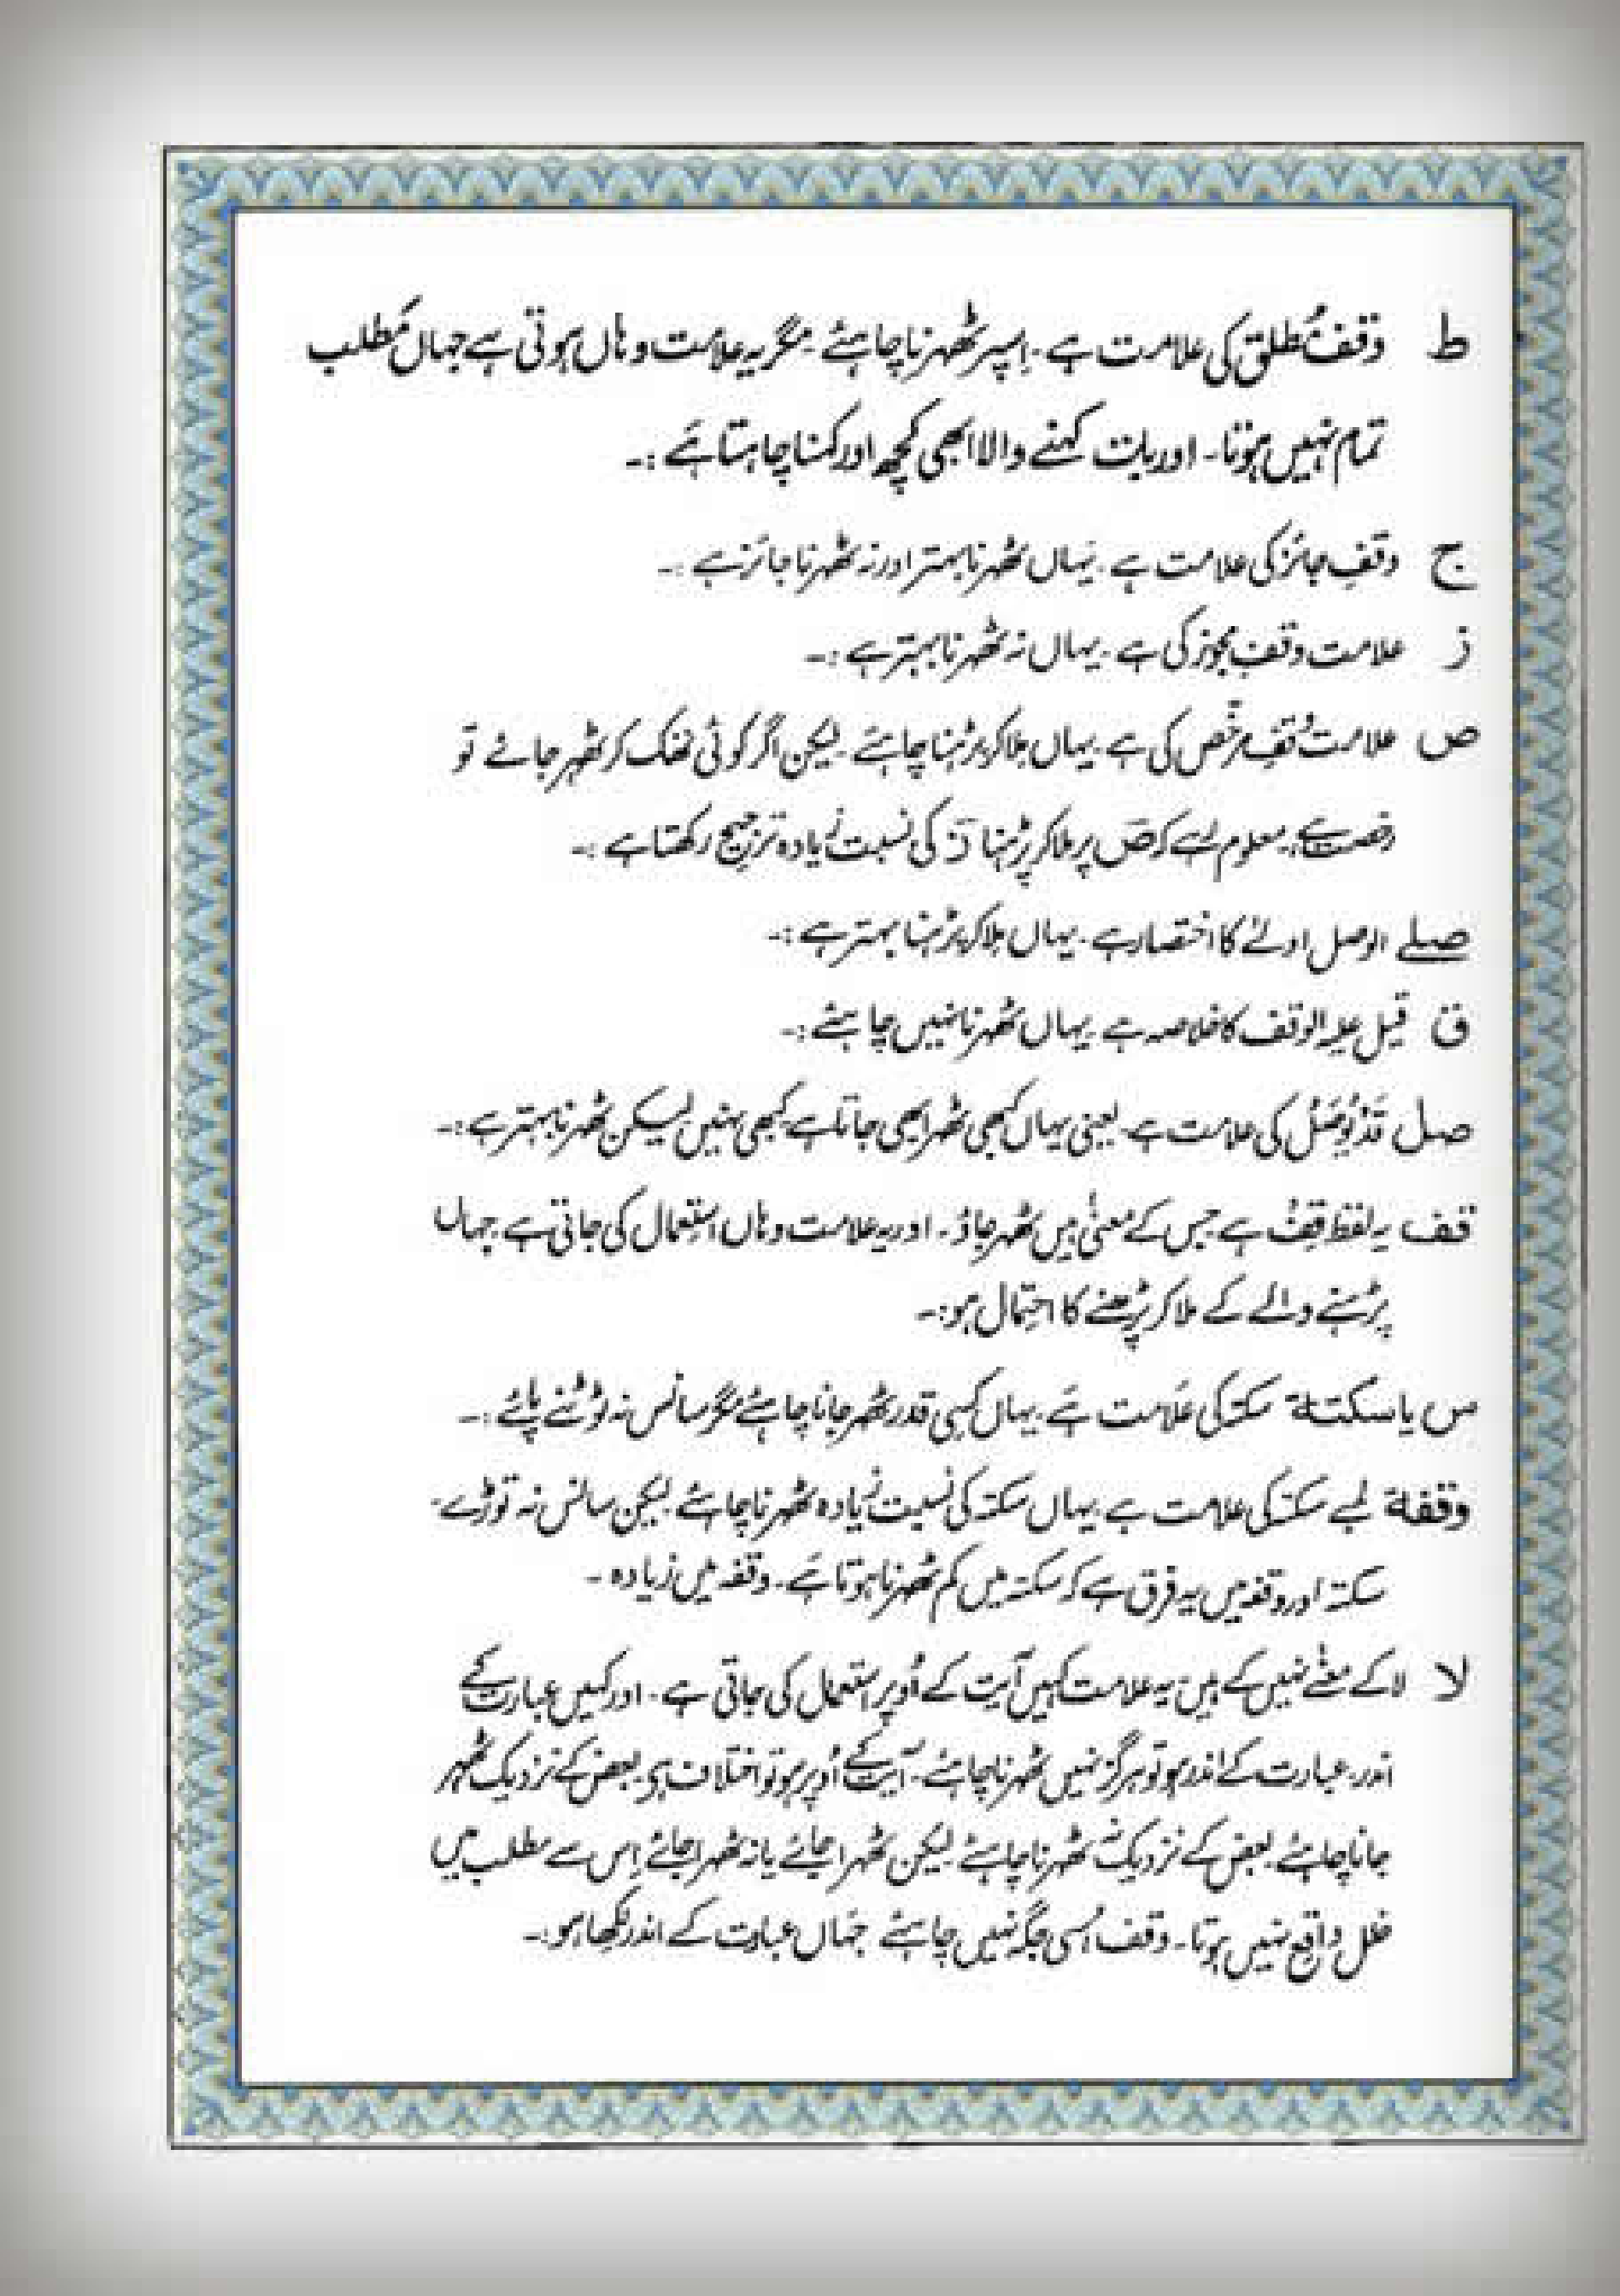 ط وقف مُطلق کی علامت ہے۔ اِسپر ٹھہرنا چاہئے۔ مگر یہ علامت وہاں ہوتی ہے جہاں مَطلب
تمام نہیں ہوتا۔ اور بات کہنے والا ابھی کچھ اور کہنا چاہتا ہَے :۔
ج وقفِ جائز کی علامت ہے۔ یہاں ٹھہرنا بہتر اور نہ ٹھہرنا جائز ہے :۔
ز علامت وقفِ مجوز کی ہے۔ یہاں نہ ٹھہرنا بہتر ہے :۔
ص علامت وقفِ مرخّص کی ہے۔ یہاں ملا کر پڑہنا چاہئے۔ لیکن اگر کوئی تھک کر ٹھہر جائے تو
رخصت ہے۔ معلوم رہے کہ صؔ پر ملا کر پڑہنا زؔ کی نسبت زیادہ ترجیح رکھتا ہے :۔
صلے الوصل اولےٰ کا اختصار ہے۔ یہاں ملا کر پڑہنا بہتر ہے :۔
ق قیل علیہ الوقف کا خلاصہ ہے۔ یہاں ٹھہرنا نہیں چاہئے :۔
صل قَدْ یُوْصَلُ کی علامت ہے۔ یعنی یہاں کبھی ٹھہرا بھی جاتا ہے کبھی نہیں لیکن ٹھہرنا بہتر ہے :۔
قف یہ لفظ قِفْ ہے جس کے معنٰی ہیں ٹھہر جاؤ۔ اور یہ علامت وہاں استعمال کی جاتی ہے۔ جہاں
پڑہنے والے کے ملا کر پڑھنے کا احتمال ہو :۔
س یا سکتة سکتہ کی علَامت ہَے۔ یہاں کسِی قدر ٹھہر جانا چاہئے مگر سانس نہ ٹوٹنے پائے :۔
وقفة لمبے سکتہ کی علامت ہے۔ یہاں سکتہ کی نسبت زیادہ ٹھہرنا چاہئے۔ لیکن سانس نہ توڑے۔
سکتہ اور وقفہ میں یہ فرق ہے کہ سکتہ میں کم ٹھہرنا ہوتا ہَے۔ وقفہ میں زیادہ۔
لا لا کے معنٰے نہیں کے ہیں۔ یہ علامت کہیں آیت کے اُوپر استعمال کی جاتی ہے۔ اور کہیں عبارت کے
اندر۔ عبارت کے اندر ہو تو ہرگز نہیں ٹھہرنا چاہئے۔ آیت کے اُوپر ہو تو اختلاف ہی۔ بعض کے نزدیک ٹھہر
جانا چاہئے۔ بعض کے نزدیک نہ ٹھہرنا چاہئے۔ لیکن ٹھہرا جائے یا نہ ٹھہرا جائے اِس سے مطلب میں
خلل واقع نہیں ہوتا۔ وقف اُسی جگہ نہیں چاہئے جہاں عبارت کے اندر لکھا ہو :۔